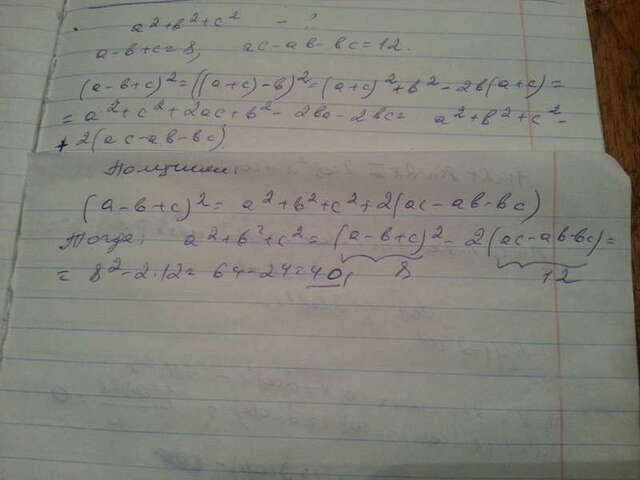 a²+b²+c² - ?
a-b+c=8, ac-ab-bc=12.
(a-b+c)²=((a+c)-b)²=(a+c)²+b²-2b(a+c)=
=a²+c²+2ac+b²-2ba-2bc= a²+b²+c²-
+2(ac-ab-bc)
Получили:
(a-b+c)²= a²+b²+c²+2(ac-ab-bc)
Тогда: a²+b²+c²=(a-b+c)²-2(ac-ab-bc)=
= 8²-2·12= 64-24=40,
8 12